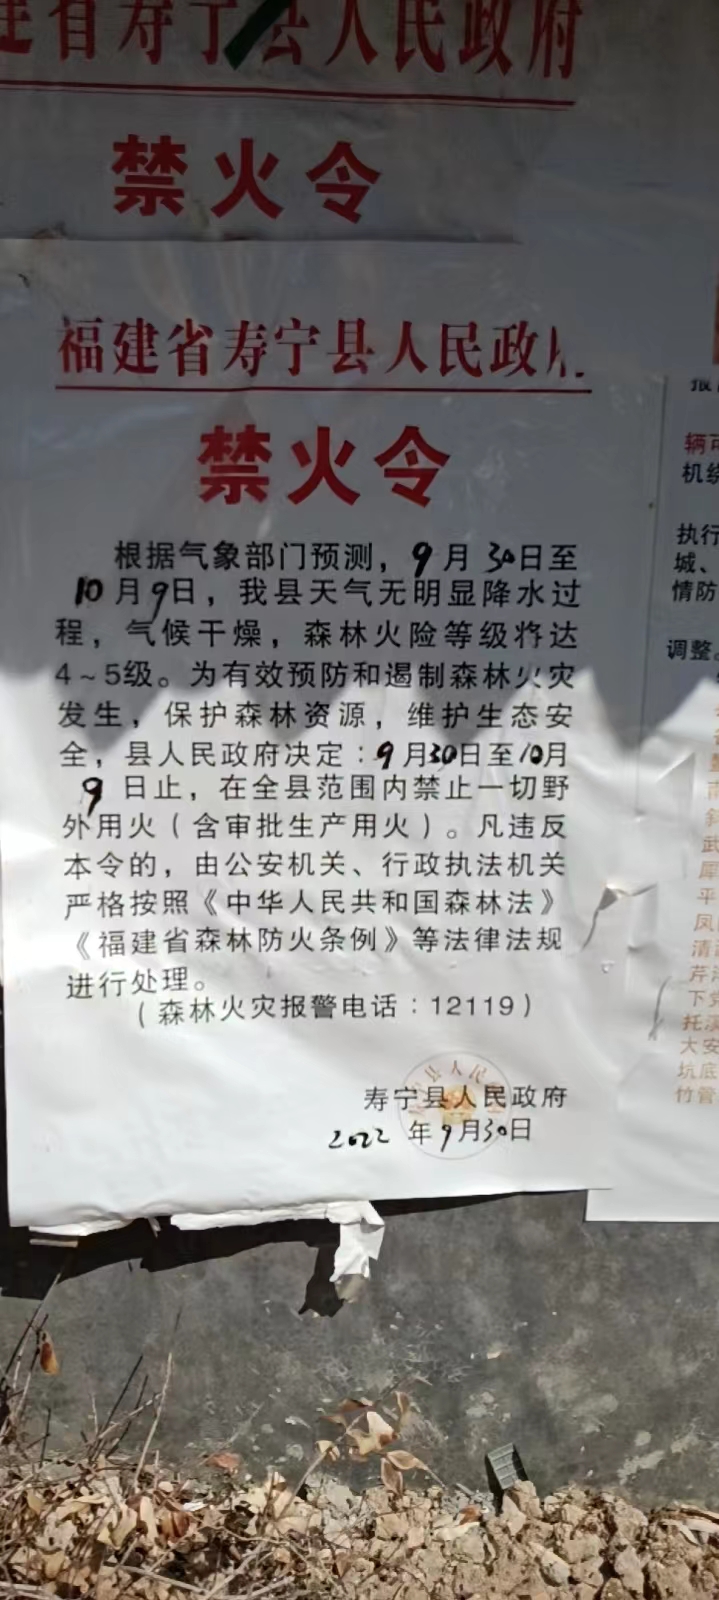 建省寿宁县人民政府
禁火令
福建省寿宁县人民政
禁火令
根据气象部门预测，9月30日至
10月9日，我县天气无明显降水过
程，气候干燥，森林火险等级将达
4～5级。为有效预防和遏制森林火灾
发生，保护森林资源，维护生态安
全，县人民政府决定：9月30日至10月
9日止，在全县范围内禁止一切野
外用火（含审批生产用火）。凡违反
本令的，由公安机关、行政执法机关
严格按照《中华人民共和国森林法》
《福建省森林防火条例》等法律法规
进行处理。
（森林火灾报警电话：12119）
寿宁县人民政府
2022年9月30日
辆
机
执行
城、
情防
调整。
武
犀
平
凤
清
芹
下党
托溪
大安
坑底
竹管